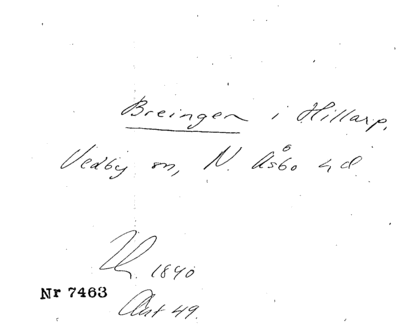 Breingen i Hillarp,
Vedby sn, N. Åsbo hd
1840
Nr 7463
Avst 49.